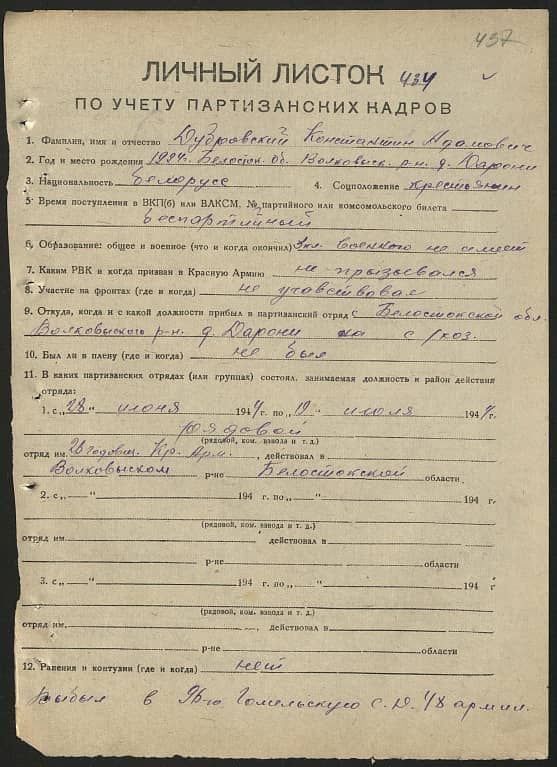 437
ЛИЧНЫЙ ЛИСТОК 434
ПО УЧЕТУ ПАРТИЗАНСКИХ КАДРОВ
1. Фамилия, имя и отчество Дубровский Константин Адамович
2. Год и место рождения 1924г. Белосток. Об. Волковыск. р-н. д. Дарони
3. Национальность белорусс 4. Соцположение крестьянин
5. Время поступления в ВКП(б) или ВЛКСМ, № партийного или комсомольского билета
беспартийный
6. Образование: общее и военное (что и когда окончил) 3кл. военного не имеет
7. Каким РВК и когда призван в Красную Армию не призывался
8. Участие на фронтах (где и когда) не участвовал
9. Откуда, когда и с какой должности прибыл в партизанский отряд с Белостокской обл.
Волковыского р-н. д. Дарони с/хоз.
10. Был ли в плену (где и когда) не был
11. В каких партизанских отрядах (или группах) состоял, занимаемая должность и район действия
отряда:
1. с „28" июня 1944 г. по „12" июля 1944 г.
рядовой
(рядовой, ком. взвода и т. д.)
отряд им. 26 годовщ. Кр. Арм., действовал в
Волковыском р-не Белостокской области
2. с „ " 194 г. по „ " 194 г
(рядовой, ком. взвода и т. д.)
отряд им. действовал в
р-не области
3. с „ " 194 г. по „ " 194 г
(рядовой, ком. взвода и т. д.)
отряд им. , действовал в
р-не области
12. Ранения и контузии (где и когда) нет
Выбыл в Гомельскую с.д. 48 армии.